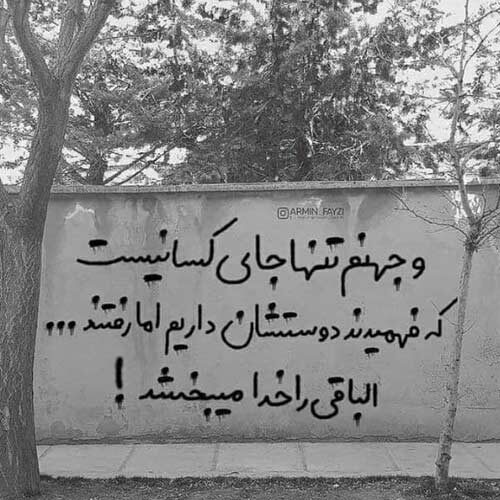 ARMIN_FAYZI
و جهنم تنها جای کسانیست
که فهمیدند دوستشان داریم اما رفتند ...
الباقی را خدا میبخشد !